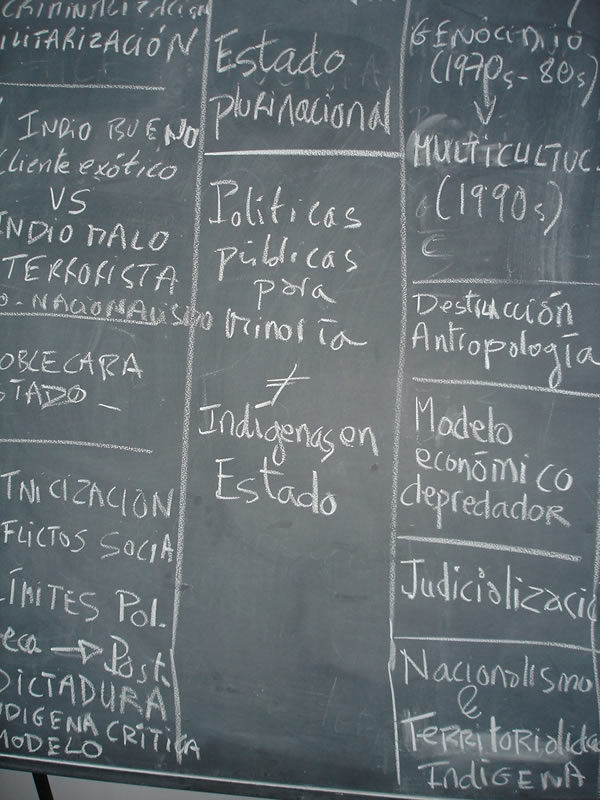 CRIMINALIZACIÓN
ILITARIZACIÓN
INDIO BUENO
cliente exótico
VS
INDIO MALO
TERRORISTA
O-NACIONALISMO
OBLE CARA
STADO
TNICIZACIÓN
FLICTOS SOCIA
LÍMITES POL.
eca → Post.
DICTADURA
NDIGENA CRÍTICA
MODELO
Estado
plurinacional
Políticas
públicas
para
minoría
≠
Indígenas en
Estado
GENOCIDIO
(1970s-80s)
↓
MULTICULTUC.
(1990s)
Destrucción
Antropología
Modelo
económico
depredador
Judicializació
Nacionalismo
&
Territorialida
Indígena